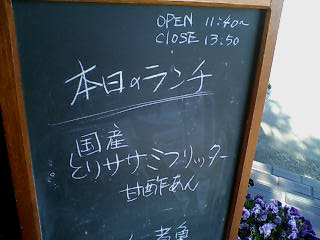 OPEN 11:40~
CLOSE 13:50
本日のランチ
国産
とりササミフリッター
甘酢あん
煮魚